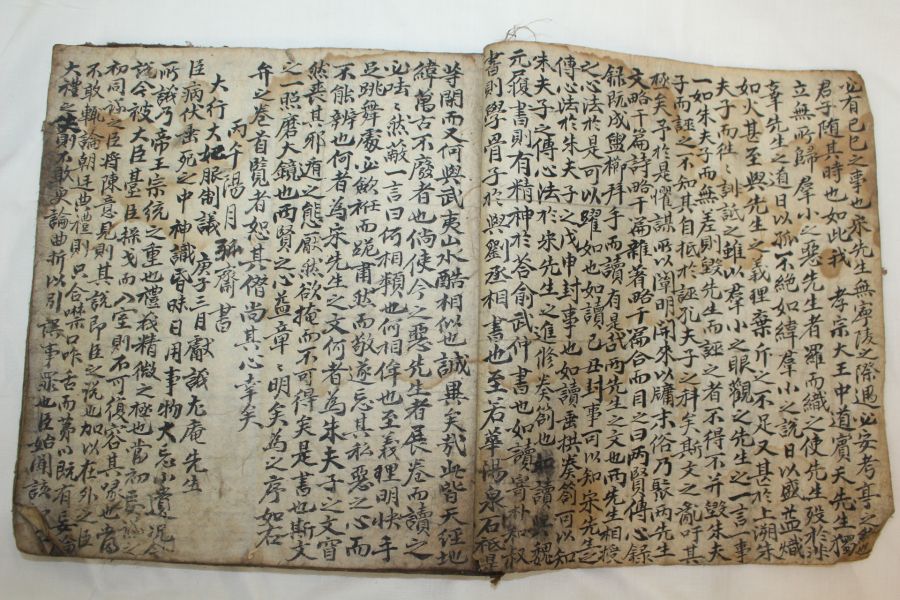 必有己巳之事也宋先生無寧陵之際遇必安考亭之
君子随其時也如此我 孝宗大王中道賓天先生獨
立無所歸羣小之惡先生者羅而織之使先生歿於非
辜先生之道日以孤不絕如緯羣小之說日以盛益熾
如火甚至與先生之義理棄斥之不足又甚於上溯朱
夫子而往訓詆之雖以羣小之眼觀之先生之一言一事
一如朱夫子而無差則毀先生而誣之者不得不并毀朱夫
子而誣之不知其自抵於誣孔夫子之科矣斯文之亂吁其
極矣予於是懼謀所以闡明開來以牖末俗乃聚両先生
文略千篇詩略千篇雜著略千篇合而目之曰両賢傳心錄
錄既成盥櫛拜手而讀有是哉両先生之文也両先生相授
之心法於是可以躍如也如讀己丑封事可以知宋先生
傳心法於朱夫子之戊申封事也如讀禹拱巻劄可以知
朱夫子之傳心法於宋先生之進修巻劄也如讀與魏
元履書則有精神於答俞武仲書也如讀寄朴和叔
書則學骨子於與劉丞相書也至若華陽泉石秪是
等閑而又何與武夷山水酷相似也誠異矣哉此皆天經地
緯萬古不廢者也倘使今之惡先生者展卷而讀之
必怯然蔽一言曰何相類也何相侔也至義理明快手
足跳舞處必斂袵而跪肅然而敬遂忘其私惡之心而
不能辨也何者為宋先生之文何者為朱夫子之文霅
然喪其邪有之態厭然欲掩而不可得矣是書也斯文
之一照磨大鏡也両賢之心益章明矣為之序如右
弁之巻首覧者恕其僭尚其心幸矣
丙午陽月孤齋書
大行大妃服制議 庚子三月獻議尤庵先生
臣病伏垂死之中神識昏昧日用事物大忘小遺況今
所議乃帝王宗統之重也禮我精微之極也當初
說今被大臣基臣操戈而入室則不可復容其喙也當
初同臣將陳意見則其說即臣之說也加以在外之臣
不敢輒論朝廷典禮則只合噤口咋舌而第以既有妄論
大禮之失則不敢更論曲折以引誤事罪也臣始聞該